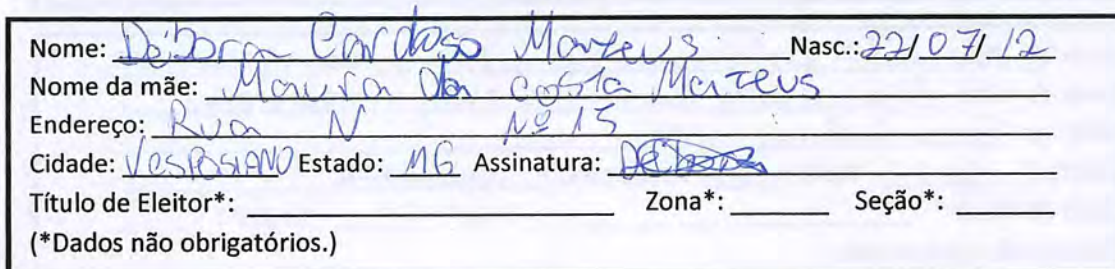 Nome: Débora Cardoso Mateus Nasc.: 22/07/12
Nome da mãe: Maura da costa Mateus
Endereço: Rua N Nº 15
Cidade: VESPOSIANO Estado: MG Assinatura: Débora
Título de Eleitor*: Zona*: Seção*:
(*Dados não obrigatórios.)